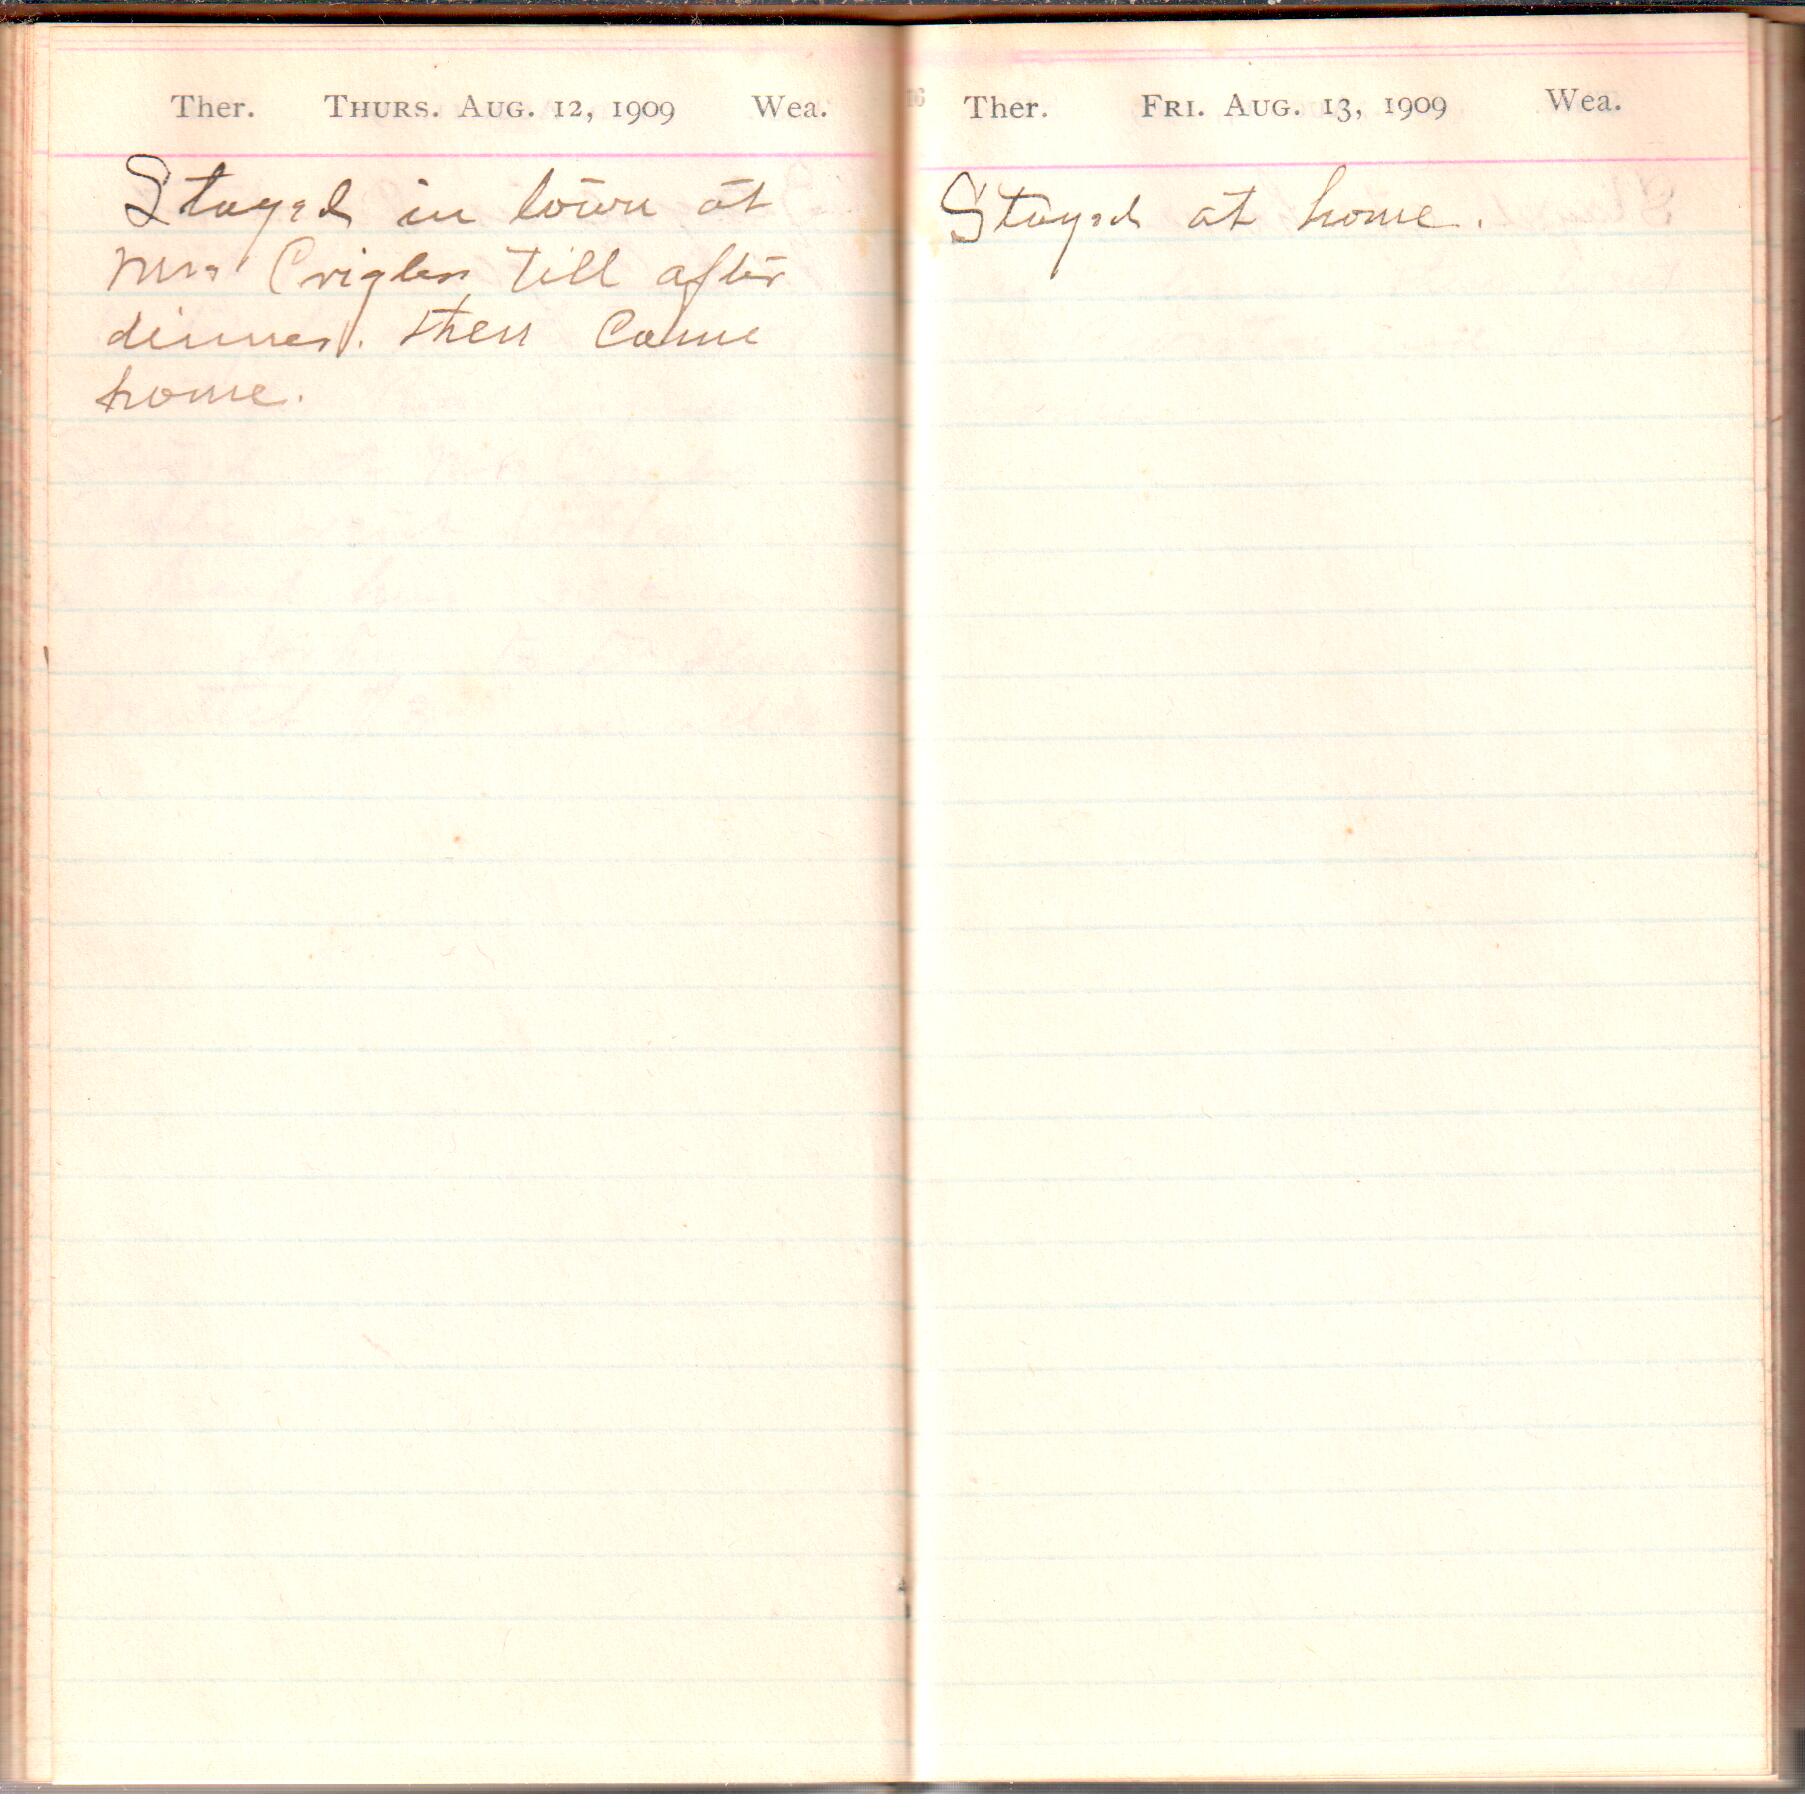 Ther. THURS. AUG. 12, 1909 Wea.
Stayed in town at
Mrs Criglers till after
dinner. then Came
home.
Ther. FRI. AUG. 13, 1909 Wea.
Stayed at home.